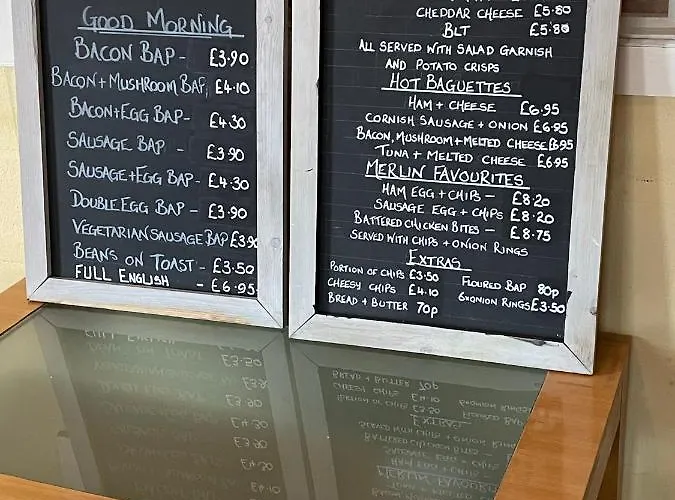 GOOD MORNING
BACON BAP - £3.90
BACON + MUSHROOM BAP, £4.10
BACON+EGG BAP- £4.30
SAUSAGE BAP - £3.90
SAUSAGE+EGG BAP - £4.30
DOUBLE EGG BAP - £3.90
VEGETARIAN SAUSAGE BAP £3.90
BEANS ON TOAST - £3.50
FULL ENGLISH - £6.95
CHEDDAR CHEESE £5.80
BLT £5.80
ALL SERVED WITH SALAD GARNISH
AND POTATO CRISPS
HOT BAGUETTES
HAM + CHEESE £6.95
CORNISH SAUSAGE + ONION £6.95
BACON, MUSHROOM + MELTED CHEESE £6.95
TUNA + MELTED CHEESE £6.95
MERLIN FAVOURITES
HAM EGG + CHIPS - £8.20
SAUSAGE EGG + CHIPS £8.20
BATTERED CHICKEN BITES - £8.75
SERVED WITH CHIPS + ONION RINGS
EXTRAS
PORTION OF CHIPS £3.50
CHEESY CHIPS £4.10
BREAD + BUTTER 70p
FLOURED BAP 80p
6 ONION RINGS £3.50